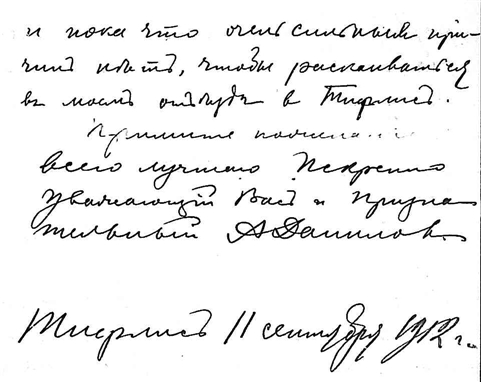 и пока что очень сильныхъ при-
чинъ нѣтъ, чтобы раскаиваться
въ моемъ отъѣздѣ в Тифлисъ.
Примите
всего лучшаго Искренно
уважающій Васъ и призна-
тельный АДанилов
Тифлисъ 11 сентября 1912 г.